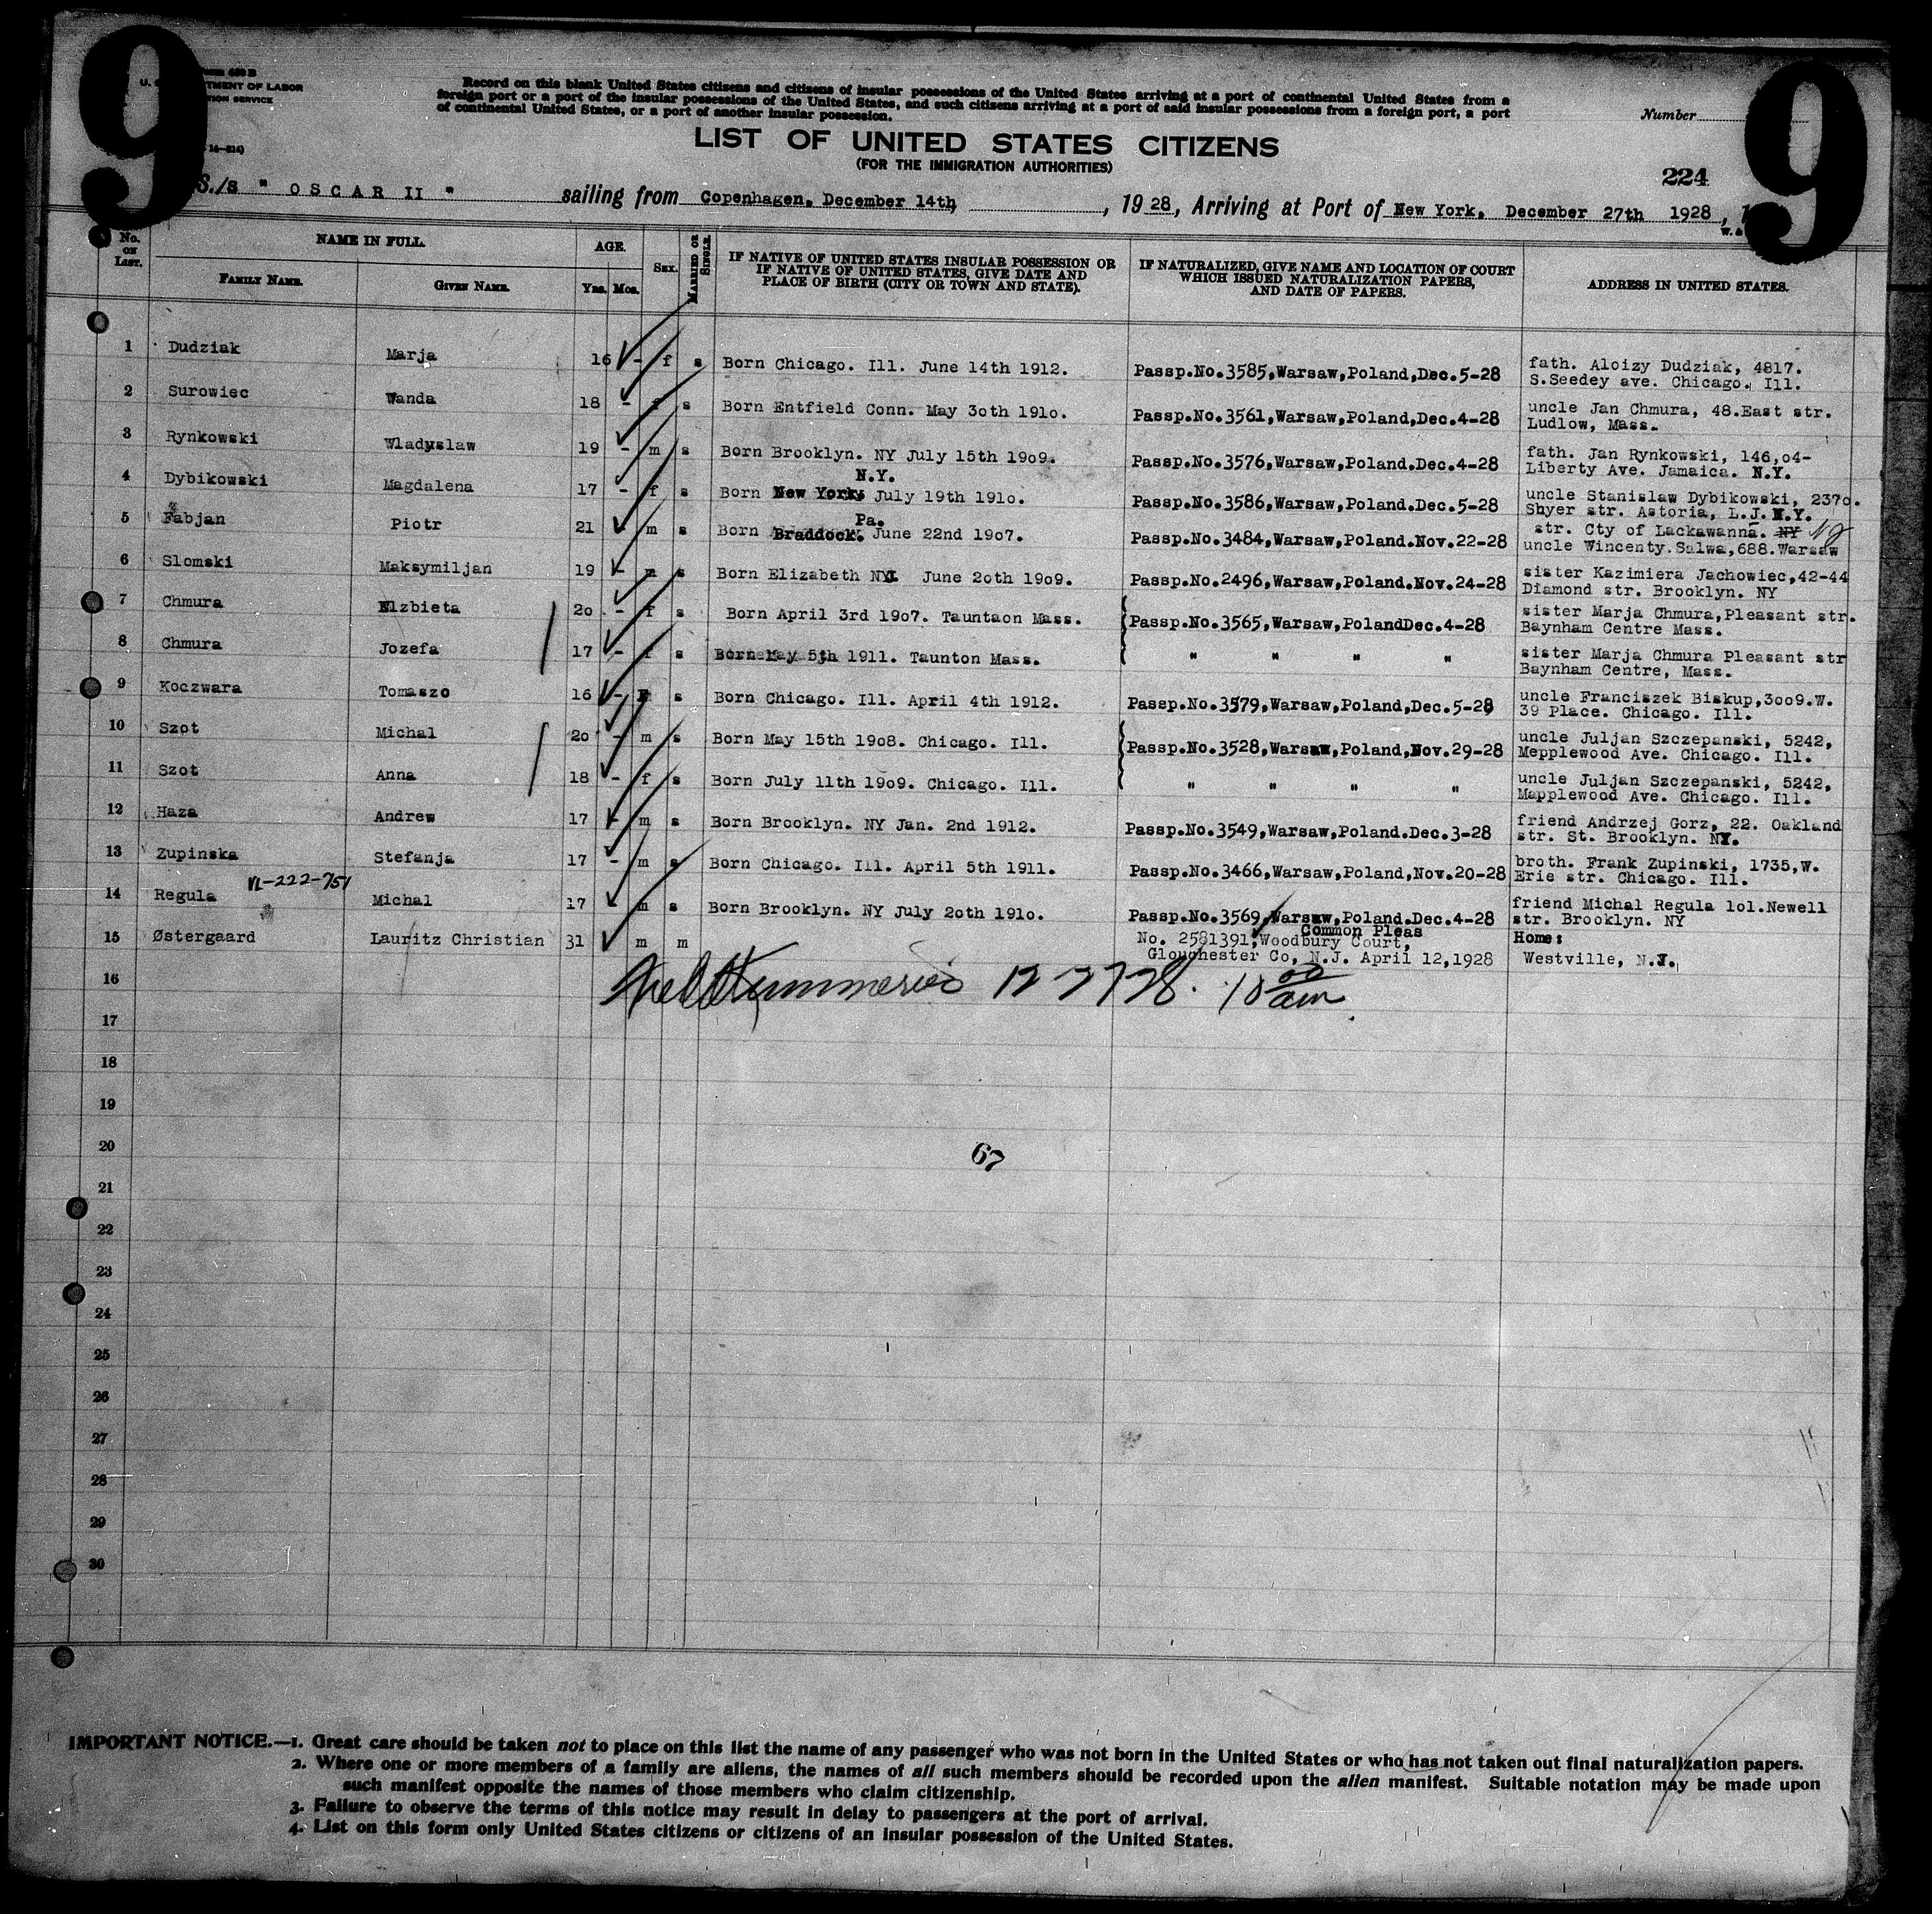 9
9
TMENT OF LABOR
Record on this blank United States citizens and citizens of insular possessions of the United States arriving at a port of continental United States from a
foreign port or a port of the insular possessions of the United States, and such citizens arriving at a port of said insular possessions from a foreign port, a port
of continental United States, or a port of another insular possession.
Number
LIST OF UNITED STATES CITIZENS
(FOR THE IMMIGRATION AUTHORITIES)
224
S./s " OSCAR II " sailing from Copenhagen, December 14th, , 19 28, Arriving at Port of New York, December 27th 1928, 1
No. ON LIST. NAME IN FULL. AGE. SEX. MARRIED OR SINGLE. IF NATIVE OF UNITED STATES INSULAR POSSESSION OR IF NATIVE OF UNITED STATES, GIVE DATE AND PLACE OF BIRTH (CITY OR TOWN AND STATE). IF NATURALIZED, GIVE NAME AND LOCATION OF COURT WHICH ISSUED NATURALIZATION PAPERS, AND DATE OF PAPERS. ADDRESS IN UNITED STATES.
FAMILY NAME. GIVEN NAME. Yrs. Mos.
1 Dudziak Marja 16 - f s Born Chicago. Ill. June 14th 1912. Passp.No.3585,Warsaw,Poland,Dec.5-28 fath. Aloizy Dudziak, 4817.
S.Seedey ave. Chicago. Ill.
2 Surowiec Wanda 18 - f s Born Entfield Conn. May 3oth 191o. Passp.No.3561,Warsaw,Poland,Dec.4-28 uncle Jan Chmura, 48.East str.
Ludlow, Mass.
3 Rynkowski Wladyslaw 19 - m s Born Brooklyn. NY July 15th 19o9. Passp.No.3576,Warsaw,Poland.Dec.4-28 fath. Jan Rynkowski, 146,o4-
Liberty Ave. Jamaica. N.Y.
N.Y.
4 Dybikowski Magdalena 17 - f s Born New York, July 19th 191o. Passp.No.3586,Warsaw,Poland,Dec.5-28 uncle Stanislaw Dybikowski, 237o.
Shyer str. Astoria, L.J. N.Y.
Pa.
5 Fabjan Piotr 21 m s Born Braddock. June 22nd 19o7. Passp.No.3484,Warsaw,Poland.Nov.22-28 str. Cty of Lackawanna. NY NY
uncle Wincenty.Salwa,688.Warsaw
6 Slomski Maksymiljan 19 - m s Born Elizabeth NJ. June 2oth 19o9. Passp.No.2496,Warsaw,Poland.Nov.24-28 sister Kazimiera Jachowiec,42-44
Diamond str. Brooklyn. NY
7 Chmura Elzbieta 2o - f s Born April 3rd 19o7. Tauntaon Mass. Passp.No.3565,Warsaw,PolandDec.4-28 sister Marja Chmura,Pleasant str.
Baynham Centre Mass.
8 Chmura Jozefa 17 - f s Born May 5th 1911. Taunton Mass. " " " " sister Marja Chmura Pleasant str
Baynham Centre, Mass.
9 Koczwara Tomaszo 16 - m s Born Chicago. Ill. April 4th 1912. Passp.No.3579,Warsaw,Poland,Dec.5-28 uncle Franciszek Biskup,3oo9.W.
39 Place. Chicago. Ill.
10 Szot Michal 2o - m s Born May 15th 19o8. Chicago. Ill. Passp.No.3528,Warsaw,Poland,Nov.29-28 uncle Juljan Szczepanski, 5242,
Mepplewood Ave. Chicago. Ill.
11 Szot Anna 18 - f s Born July 11th 19o9. Chicago. Ill. " " " " uncle Juljan Szczepanski, 5242,
Mapplewood Ave. Chicago. Ill.
12 Haza Andrew 17 - m s Born Brooklyn. NY Jan. 2nd 1912. Passp.No.3549,Warsaw,Poland.Dec.3-28 friend Andrzej Gorz, 22. Oakland
str. St. Brooklyn. NY.
13 Zupinska Stefanja 17 - m s Born Chicago. Ill. April 5th 1911. Passp.No.3466,Warsaw,Poland,Nov.20-28 broth. Frank Zupinski, 1735,W.
Erie str. Chicago. Ill.
VL-222-751
14 Regula Michal 17 - m s Born Brooklyn. NY July 2oth 191o. Passp.No.3569,Warsaw,Poland.Dec.4-28 friend Michal Regula lol.Newell
str. Brooklyn. NY
Common Pleas
15 Østergaard Lauritz Christian 31 m m No. 2581391,Woodbury Court, Home:
Glouchester Co, N.J. April 12,1928 Westville, N.J.
12 27 28. 10 00 am.
16
17
18
19
20
67
21
22
23
24
25
26
27
28
29
30
IMPORTANT NOTICE.—1. Great care should be taken not to place on this list the name of any passenger who was not born in the United States or who has not taken out final naturalization papers.
2. Where one or more members of a family are aliens, the names of all such members should be recorded upon the alien manifest. Suitable notation may be made upon
such manifest opposite the names of those members who claim citizenship.
3. Failure to observe the terms of this notice may result in delay to passengers at the port of arrival.
4. List on this form only United States citizens or citizens of an insular possession of the United States.